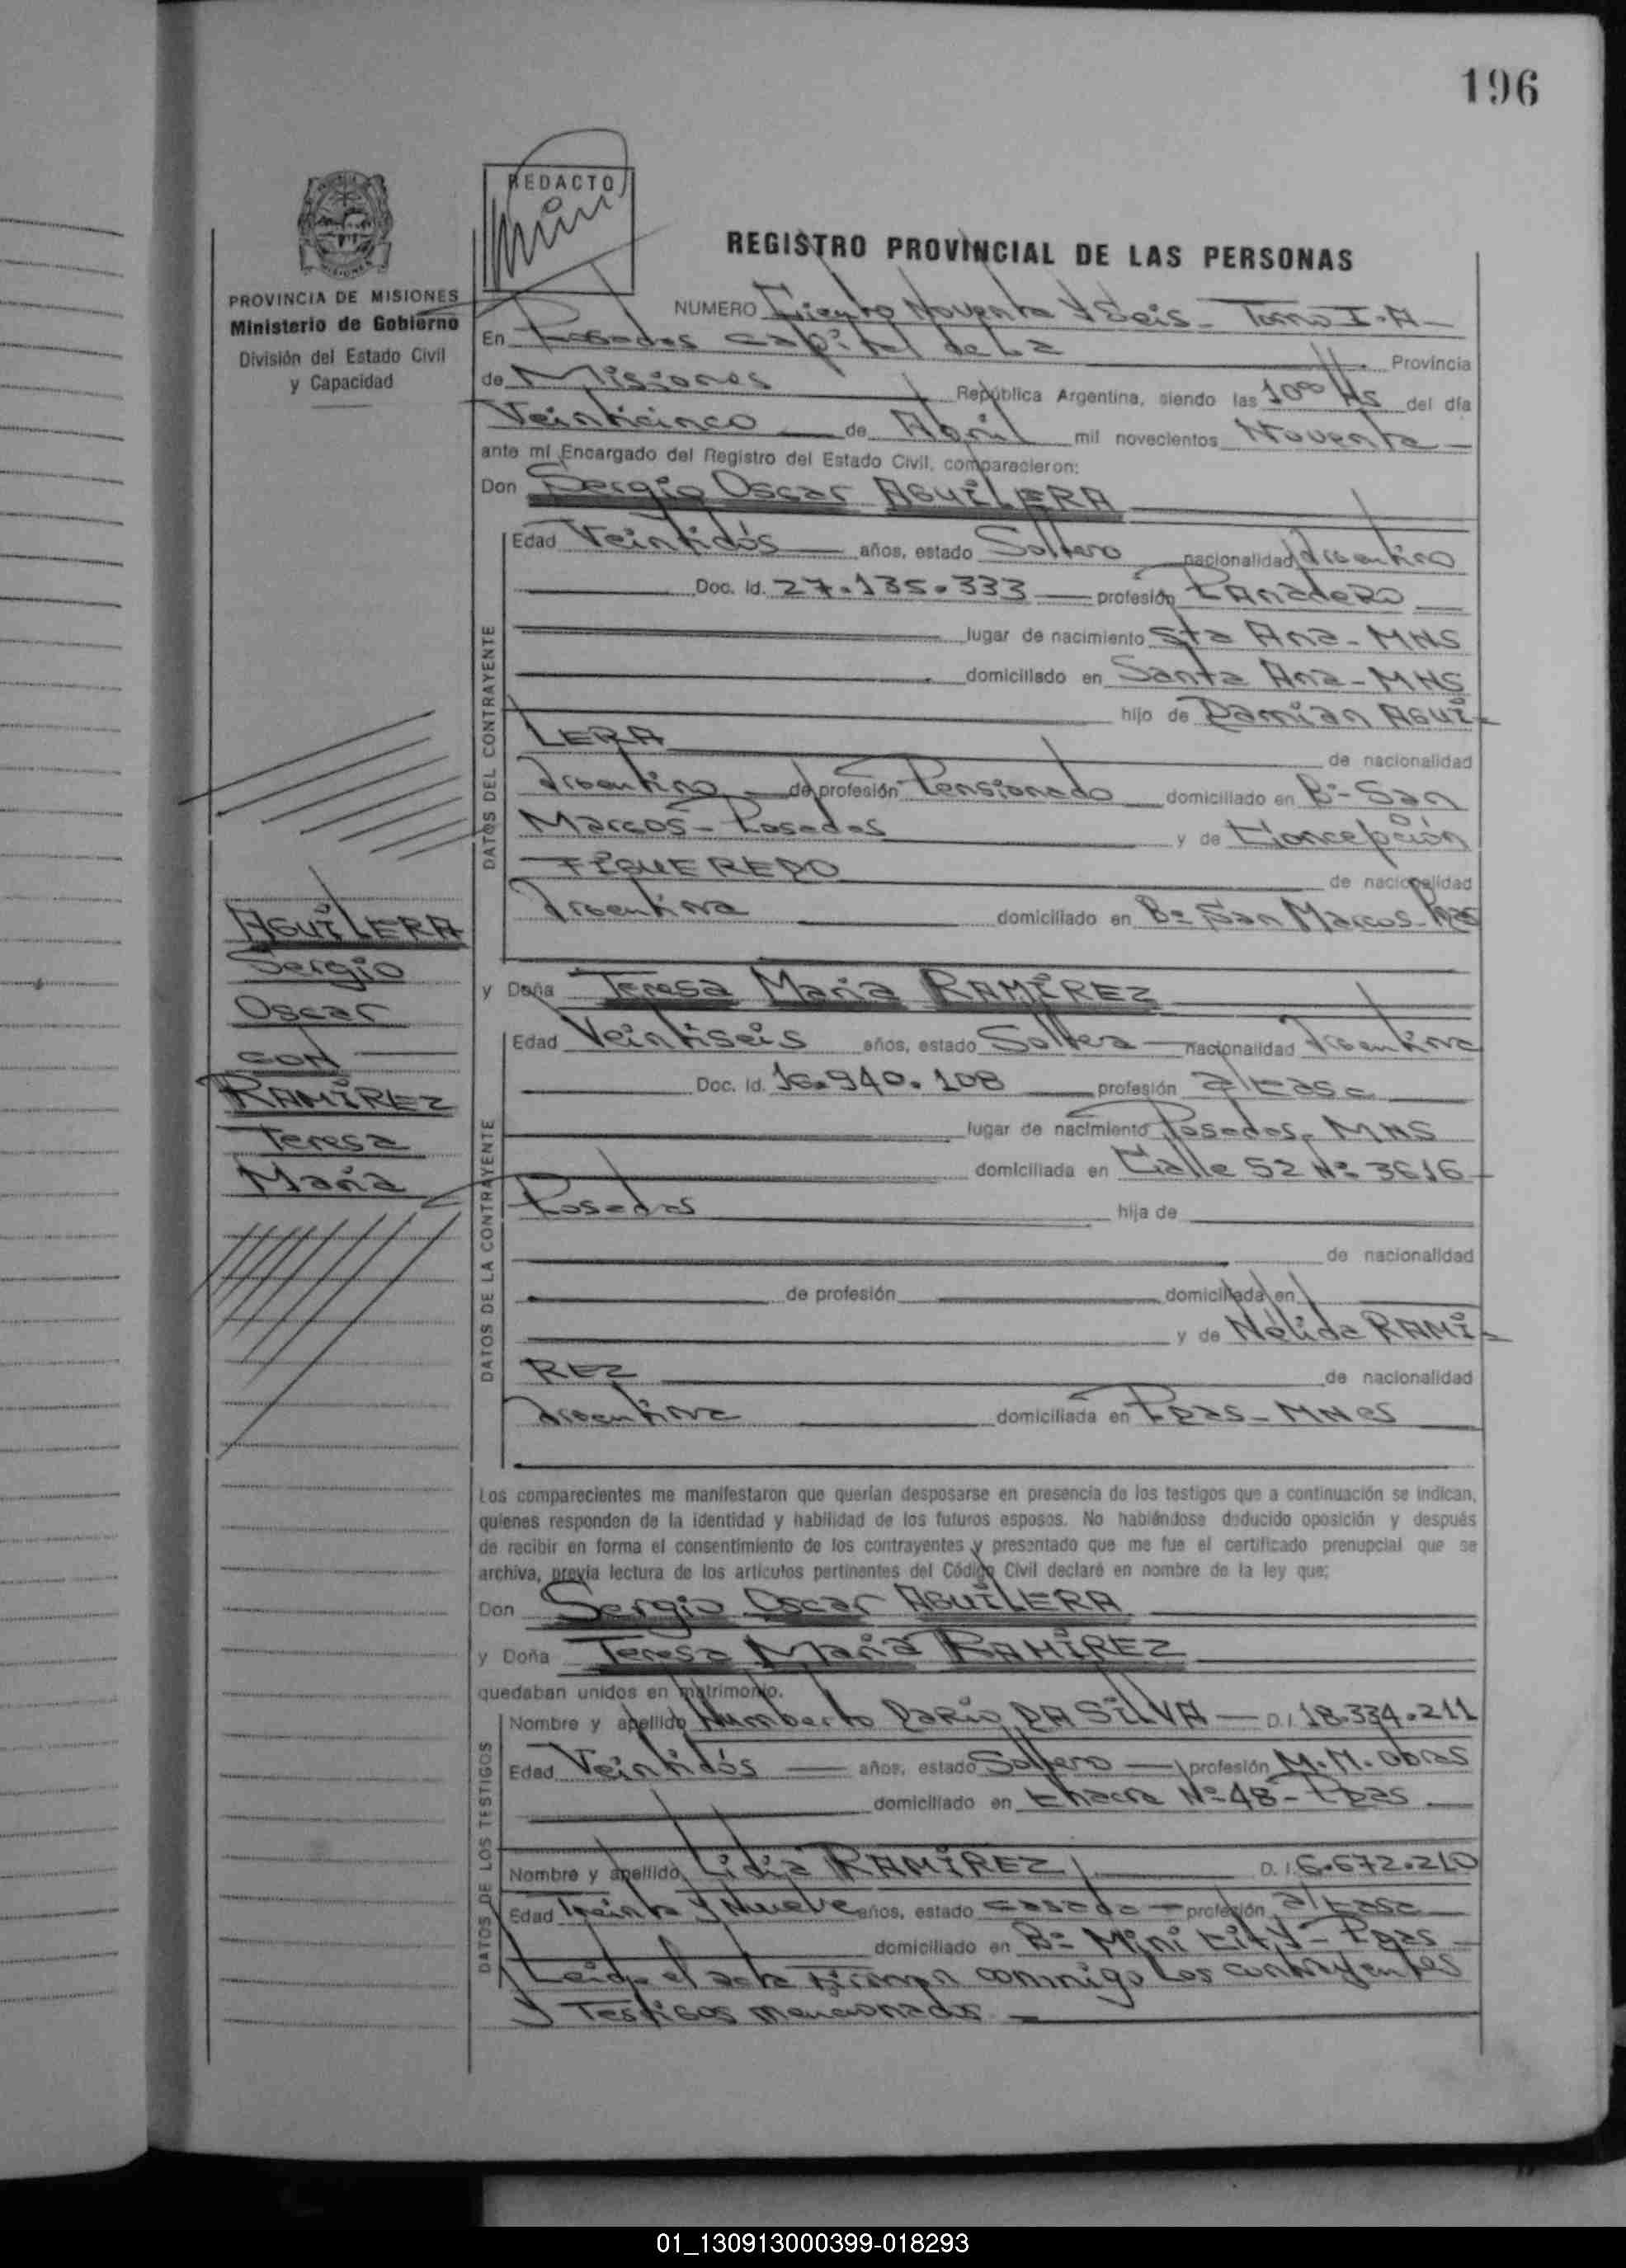 196
REDACTO
REGISTRO PROVINCIAL DE LAS PERSONAS
MISIONES
PROVINCIA DE MISIONES
Ministerio de Gobierno
División del Estado Civil
y Capacidad
NUMERO Ciento Noventa y Seis - Tomo I-A-
En Posadas Capital de La Provincia
de Misiones República Argentina, siendo las 10⁰⁰ Hs del día
Veinticinco de Abril mil novecientos Noventa
ante mí Encargado del Registro del Estado Civil, comparecieron:
Don Sergio Oscar AGUILERA
DATOS DEL CONTRAYENTE
Edad Veintidós años, estado Soltero nacionalidad Argentino
Doc. Id. 27.135.333 profesión Panadero
lugar de nacimiento Sta Ana - MNS
domiciliado en Santa Ana - MNS
hijo de Damian AGUI-
LERA de nacionalidad
Argentino de profesión Pensionado domiciliado en B°- San
Marcos - Posadas y de Concepción
FIGUEREDO de nacionalidad
Argentina domiciliado en B° San Marcos - Pdas
AGUILERA
Sergio
Oscar
CON
RAMIREZ
Teresa
María
y Doña Teresa María RAMIREZ
DATOS DE LA CONTRAYENTE
Edad Veintiseis años, estado Soltera nacionalidad Argentina
Doc. Id. 16.940.108 profesión a/casa
lugar de nacimiento Posadas, MNS
domiciliada en Calle 52 N° 3616
Posadas hija de
de nacionalidad
de profesión domiciliada en
y de Nélida RAMI-
REZ de nacionalidad
Argentina domiciliada en Pdas - MNes
Los comparecientes me manifestaron que querían desposarse en presencia de los testigos que a continuación se indican,
quienes responden de la identidad y habilidad de los futuros esposos. No habiéndose deducido oposición y después
de recibir en forma el consentimiento de los contrayentes y presentado que me fue el certificado prenupcial que se
archiva, previa lectura de los artículos pertinentes del Código Civil declaré en nombre de la ley que;
Don Sergio Oscar AGUILERA
y Doña Teresa María RAMIREZ
quedaban unidos en matrimonio.
DATOS DE LOS TESTIGOS
Nombre y apellido Humberto Dario DA SILVA D.I. 18.334.211
Edad Veintidós años, estado Soltero profesión M.M. Obras
domiciliado en Chacra N° 48 - Pdas
Nombre y apellido Lidia RAMIREZ D.I. 6.672.210
Edad Treinta y Nueve años, estado casada profesión a/casa
domiciliado en B° Mini City - Pdas
Leida el acta firman conmigo Los contrayentes
y Testigos mencionados
01_130913000399-018293